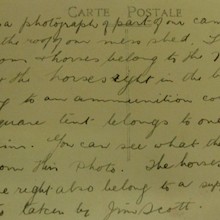 CARTE POSTALE
a photograph of part of our ca
the roof of our mess shed. T
ons & horses belong to the
& the horses right in the
g to an ammunition co
square tent belongs to one
. You can see what the
om this photo. The horses
e right also belong to a sup
taken by Jim Scott.